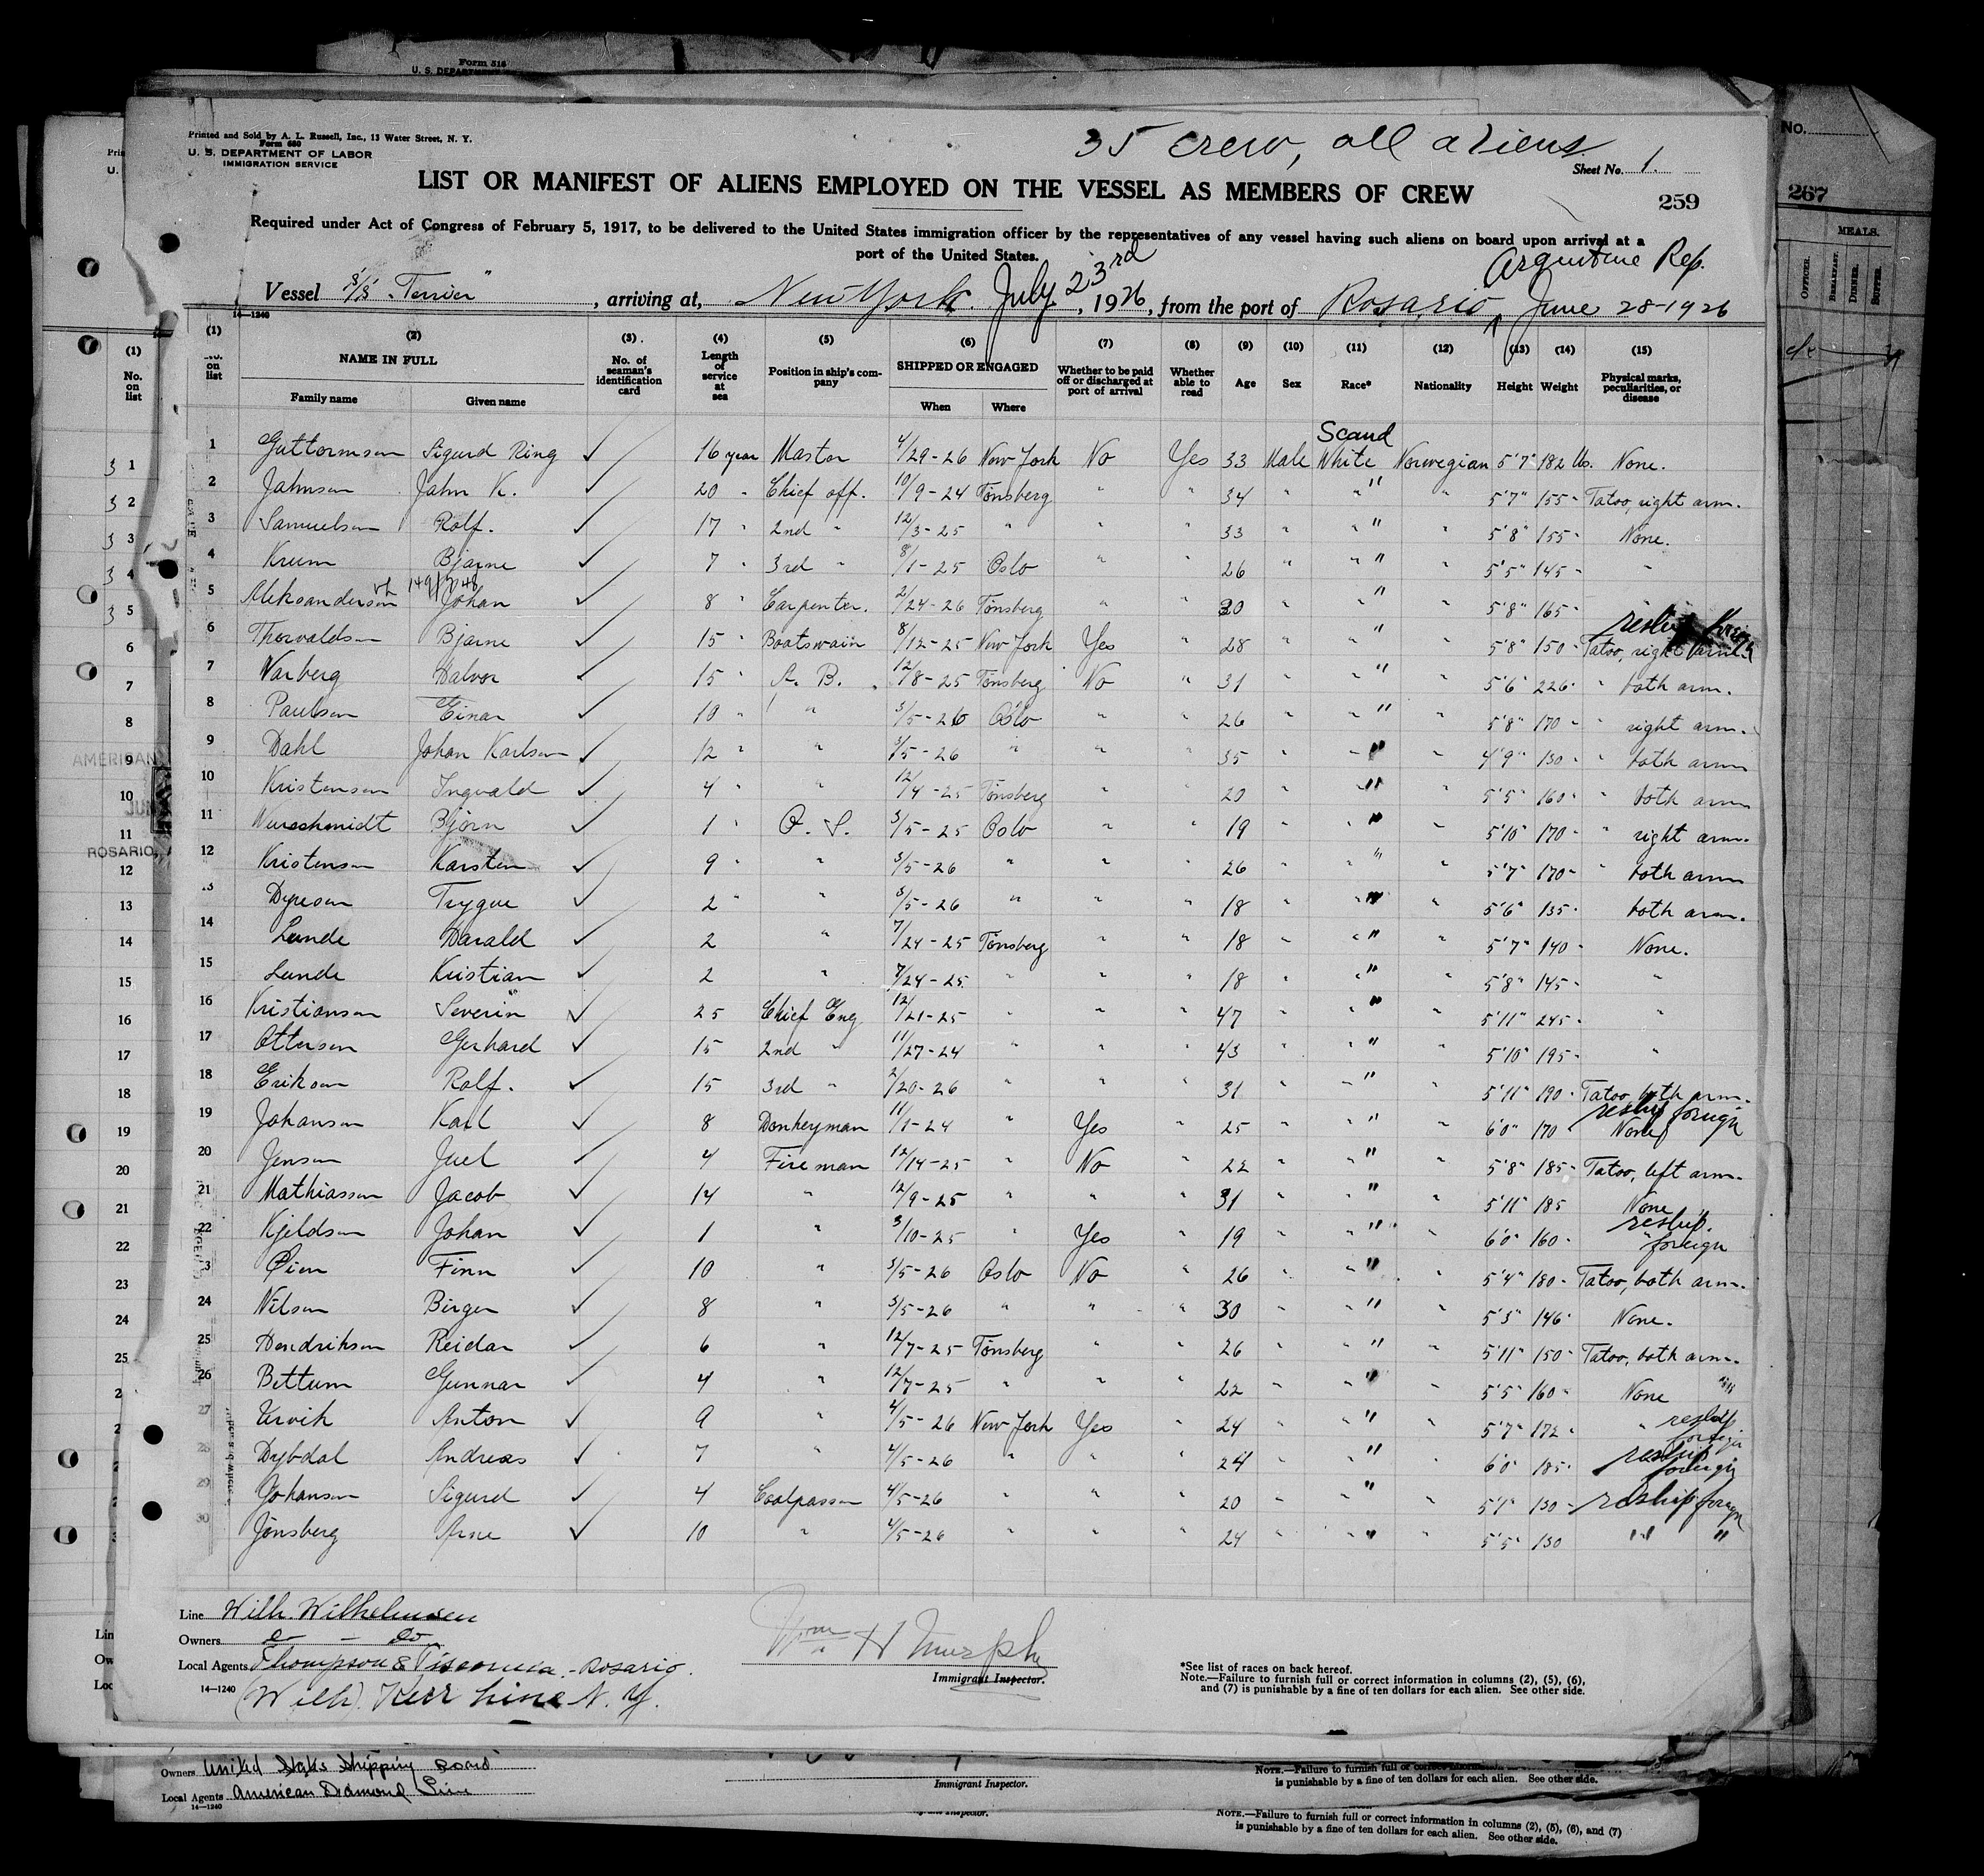 Form 516
U. S. DEPARTMENT
Printed and Sold by A. L. Russell, Inc., 13 Water Street, N. Y.
Form 680
U. S. DEPARTMENT OF LABOR
IMMIGRATION SERVICE
35 crew, all aliens
Sheet No. 1.
LIST OR MANIFEST OF ALIENS EMPLOYED ON THE VESSEL AS MEMBERS OF CREW
259
Required under Act of Congress of February 5, 1917, to be delivered to the United States immigration officer by the representatives of any vessel having such aliens on board upon arrival at a
port of the United States.
Argentine Rep.
Vessel S/S "Terrier", arriving at, New York. July 23rd, 1926, from the port of Rosario, June 28-1926
14-1240
(1) (2) (3) (4) (5) (6) (7) (8) (9) (10) (11) (12) (13) (14) (15)
No. on list NAME IN FULL Family name Given name No. of seaman's identification card Length of service at sea Position in ship's company SHIPPED OR ENGAGED When Where Whether to be paid off or discharged at port of arrival Whether able to read Age Sex Race* Nationality Height Weight Physical marks, peculiarities, or disease
Scand
1 Guttormsen Sigurd Ring ✓ 16 year Master 4/29-26 New York No Yes 33 Male White Norwegian 5'7" 182 lbs. None.
2 Johnsen John K. ✓ 20 " Chief off. 10/9-24 Tönsberg " " 34 " " " " 5'7" 155 " Tatoo, right arm.
3 Samuelsen Rolf. ✓ 17 " 2nd " 12/3-25 " " " 33 " " " " 5'8" 155 " None.
4 Krum Bjarne ✓ 7 " 3rd " 8/1-25 Oslo " " 26 " " " " 5'5" 145 " "
5 Aleksandersen Johan 8 " Carpenter. 2/24-26 Tönsberg " " 30 " " " " 5'8" 165 "
6 Thorvaldsen Bjarne ✓ 15 " Boatswain 8/12-25 New York Yes " 28 " " " " 5'8" 150 " Tatoo, right arm. reship foreign
7 Varberg Halvor ✓ 15 " A. B. 12/8-25 Tönsberg No " 31 " " " " 5'6" 226 " " both arm.
8 Paulsen Einar ✓ 10 " " 3/5-26 Oslo " " 26 " " " " 5'8" 170 " right arm.
9 Dahl Johan Karlsen ✓ 12 " " 3/5-26 " " " 35 " " " " 4'9" 130 " " both arm
10 Kristensen Ingvald ✓ 4 " " 12/4-25 Tönsberg " " 20 " " " " 5'5" 160 " " both arm
11 Bjorn ✓ 1 " O. S. 3/5-25 Oslo " " 19 " " " " 5'10" 170 " " right arm.
12 Kristensen Karsten ✓ 9 " " 3/5-26 " " " 26 " " " " 5'7" 170 " " both arm
13 Trygve ✓ 2 " " 3/5-26 " " " 18 " " " " 5'6" 135 " both arm.
14 Lunde Harald ✓ 2 " 7/24-25 Tönsberg " " 18 " " " " 5'7" 140 " None.
15 Lunde Kristian ✓ 2 " 7/24-25 " " " 18 " " " " 5'8" 145 " "
16 Kristiansen Severin ✓ 25 Chief Eng 12/21-25 " " " 47 " " " " 5'11" 245 " "
17 Ottersen Gerhard ✓ 15 2nd " 11/27-24 " " " 43 " " " " 5'10" 195 " "
18 Eriksen Rolf. ✓ 15 3rd " 2/20-26 " " " 31 " " " " 5'11" 190 " Tatoo, both arm.
19 Johansen Karl ✓ 8 Donkeyman 11/1-24 " Yes " 25 " " " " 6'0" 170 " None reship foreign
20 Jensen Juel ✓ 4 Fireman 12/14-25 " No " 22 " " " " 5'8" 185 " Tatoo, left arm.
21 Mathiassen Jacob ✓ 14 " 12/9-25 " " " 31 " " " " 5'11" 185 None
22 Kjeldsen Johan ✓ 1 " 3/10-25 " Yes " 19 " " " " 6'0" 160 " " reship. foreign
23 Öien Finn ✓ 10 " 3/5-26 Oslo No " 26 " " " " 5'4" 180 " Tatoo, both arm.
24 Nilsen Birger ✓ 8 " 3/5-26 " " " 30 " " " " 5'3" 146 " None.
25 Hendriksen Reidar ✓ 6 " 12/7-25 Tönsberg " " 26 " " " " 5'11" 150 " Tatoo, both arm.
26 Bettum Gunnar ✓ 4 " 12/7-25 " " " 22 " " " " 5'5" 160 " None
27 Ervik Anton ✓ 9 " 4/5-26 New York Yes " 24 " " " " 5'7" 172 " " reship foreign
28 Dybdal Andreas ✓ 7 " 4/5-26 " " " 24 " " " " 6'0 185 " reship foreign
29 Johansen Sigurd ✓ 4 Coalpasser 4/5-26 " " " 20 " " " " 5'1" 130 " reship foreign
30 Jönsberg Arne ✓ 10 " 4/5-26 " " " 24 " " " " 5'5" 130 " "
Line Wilh. Wilhelmsen
Owners do - do
Local Agents Thompson & - Rosario.
14-1240
(Wilh). Kerr Line N. Y.
Wm H Murphy
Immigrant Inspector.
*See list of races on back hereof.
Note.—Failure to furnish full or correct information in columns (2), (5), (6),
and (7) is punishable by a fine of ten dollars for each alien. See other side.
No.
267
MEALS.
OFFICER. BREAKFAST. DINNER. SUPPER.
AMERICAN
JUN
ROSARIO,
Owners United States Shipping Board
Local Agents American Diamond Line
14-1240
Immigrant Inspector.
NOTE.—Failure to furnish full or correct information
is punishable by a fine of ten dollars for each alien. See other side.
NOTE.—Failure to furnish full or correct information in columns (2), (5), (6), and (7)
is punishable by a fine of ten dollars for each alien. See other side.